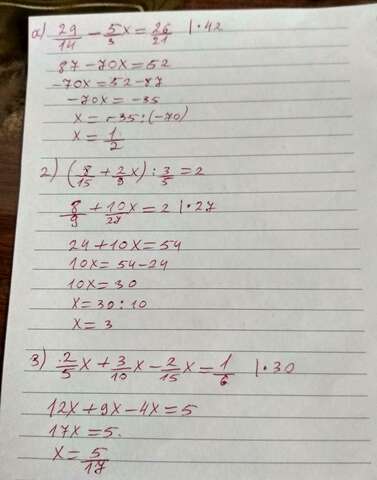 a) 29/14 - 5/3 x = 26/21 |·42
87 - 70x = 52
-70x = 52 - 87
-70x = -35
x = -35 : (-70)
x = 1/2
2) (8/15 + 2/9 x) : 3/5 = 2
8/9 + 10/27 x = 2 |·27
24 + 10x = 54
10x = 54 - 24
10x = 30
x = 30 : 10
x = 3
3) 2/5 x + 3/10 x - 2/15 x = 1/6 |·30
12x + 9x - 4x = 5
17x = 5.
x = 5/17